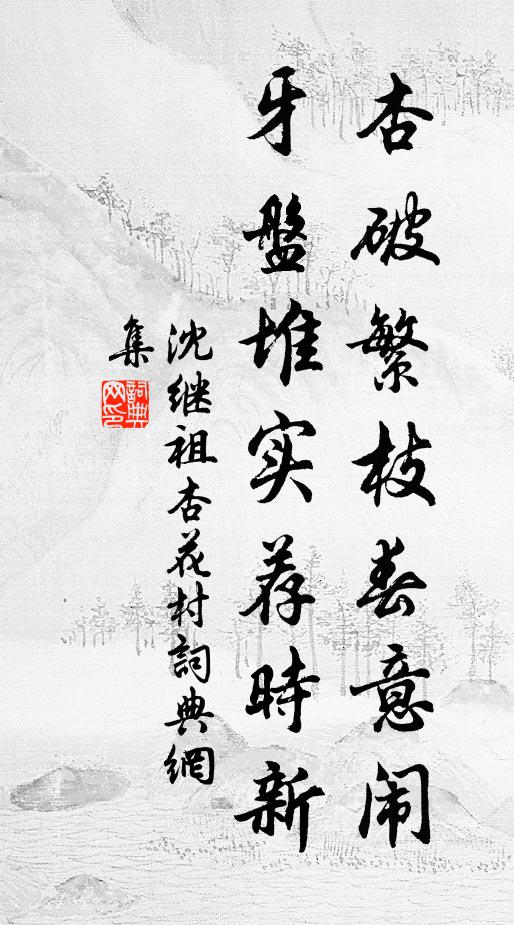 杏破繁枝春意闹
牙盤堆实荐時新
沈继祖杏花村詞典網
集
詞典网印